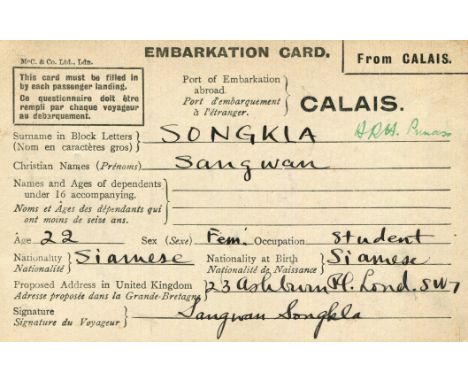 EMBARKATION CARD.
From CALAIS.
McC. & Co. Ltd., Ldn.
This card must be filled in
by each passenger landing.
Ce questionnaire doit être
rempli par chaque voyageur
au débarquement.
Port of Embarkation
abroad.
Port d'embarquement
à l'étranger.
CALAIS.
Surname in Block Letters
(Nom en caractères gros)
SONGKLA
H.R.H. Princess
Christian Names (Prénoms)
Sangwan
Names and Ages of dependents
under 16 accompanying.
Noms et Ages des dépendants qui
ont moins de seize ans.
Age 22 Sex (Sexe) Fem. Occupation Student
Nationality
Nationalité
Siamese
Nationality at Birth
Nationalité de Naissance
Siamese
Proposed Address in United Kingdom
Adresse proposée dans la Grande-Bretagne
23 Ashburn Pl. Lond. SW7
Signature
Signature du Voyageur
Sangwan Songkla